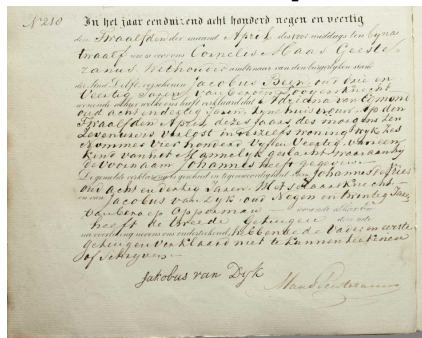 N° 210 In het jaar eenduizend acht honderd negen en veertig
den Twaalfden der maand April des voor middags ten bijna
twaalf ure is voor ons Cornelis Maas Geeste
ranus Wethouder ambtenaar van den burgerlijken stand
der Stad Delft, verschenen Jacobus Been, oud Drie en
Veertig Jaren, van beroep Loogersknecht
wonende alhier welke ons heeft verklaard dat Adriana van Egmond
oud acht en dertig Jaren, zyne huisvrouw, op den
Twaalfden April dezes Jaars, des morgens ten
Zeven ure is verlost in derzelfs woning Wyk Zes
Nommer Vier honderd Vyf en Veertig, van een
kind van het Mannelyk geslacht, waaraan hy
de voornaam Johannes heeft gegeven
De gemelde verklaring is geschied in tegenwoordigheid van Johannes de Vries
oud acht en dertig Jaren, Metselaarsknecht
en van Jacobus van Dyk, oud Negen en twintig Jaren
van beroep Opperman wonende alhier en
heeft de tweede Getuige deze acte
na voorlezing nevens ons onderteekend, hebbende de Vader en eerste
getuigen verklaard niet te kunnen teekenen
of schryven
Jakobus van Dyk
Maas Geesteranus